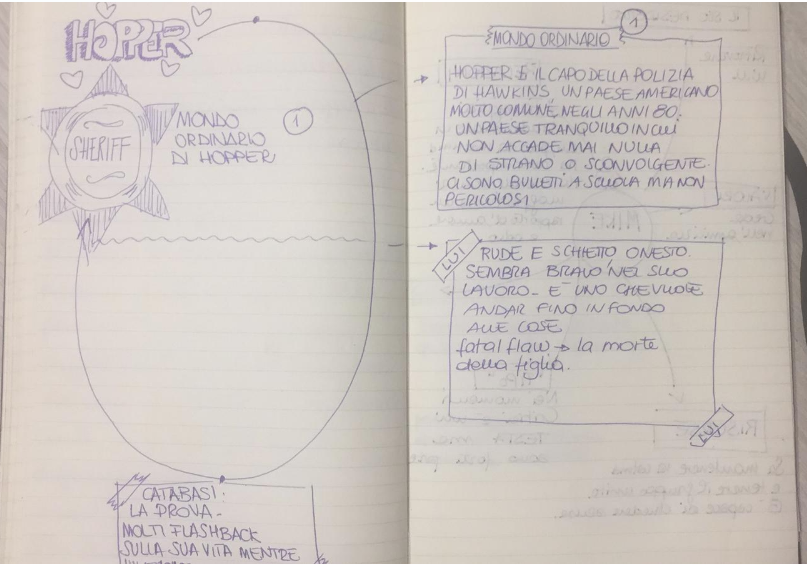 HOPPER
SHERIFF
MONDO
ORDINARIO
DI HOPPER
1
CATABASI:
LA PROVA-
MOLTI FLASHBACK
SULLA SUA VITA MENTRE
1
MONDO ORDINARIO
HOPPER È IL CAPO DELLA POLIZIA
DI HAWKINS, UN PAESE AMERICANO
MOLTO COMUNE, NEGLI ANNI 80.
UN PAESE TRANQUILLO IN CUI
NON ACCADE MAI NULLA
DI STRANO O SCONVOLGENTE.
CI SONO BULLETTI A SCUOLA MA NON
PERICOLOSI
LUI
RUDE E SCHIETTO, ONESTO.
SEMBRA BRAVO NEL SUO
LAVORO- E' UNO CHE VUOLE
ANDAR FINO IN FONDO
ALLE COSE
fatal flaw → la morte
della figlia.
LUI